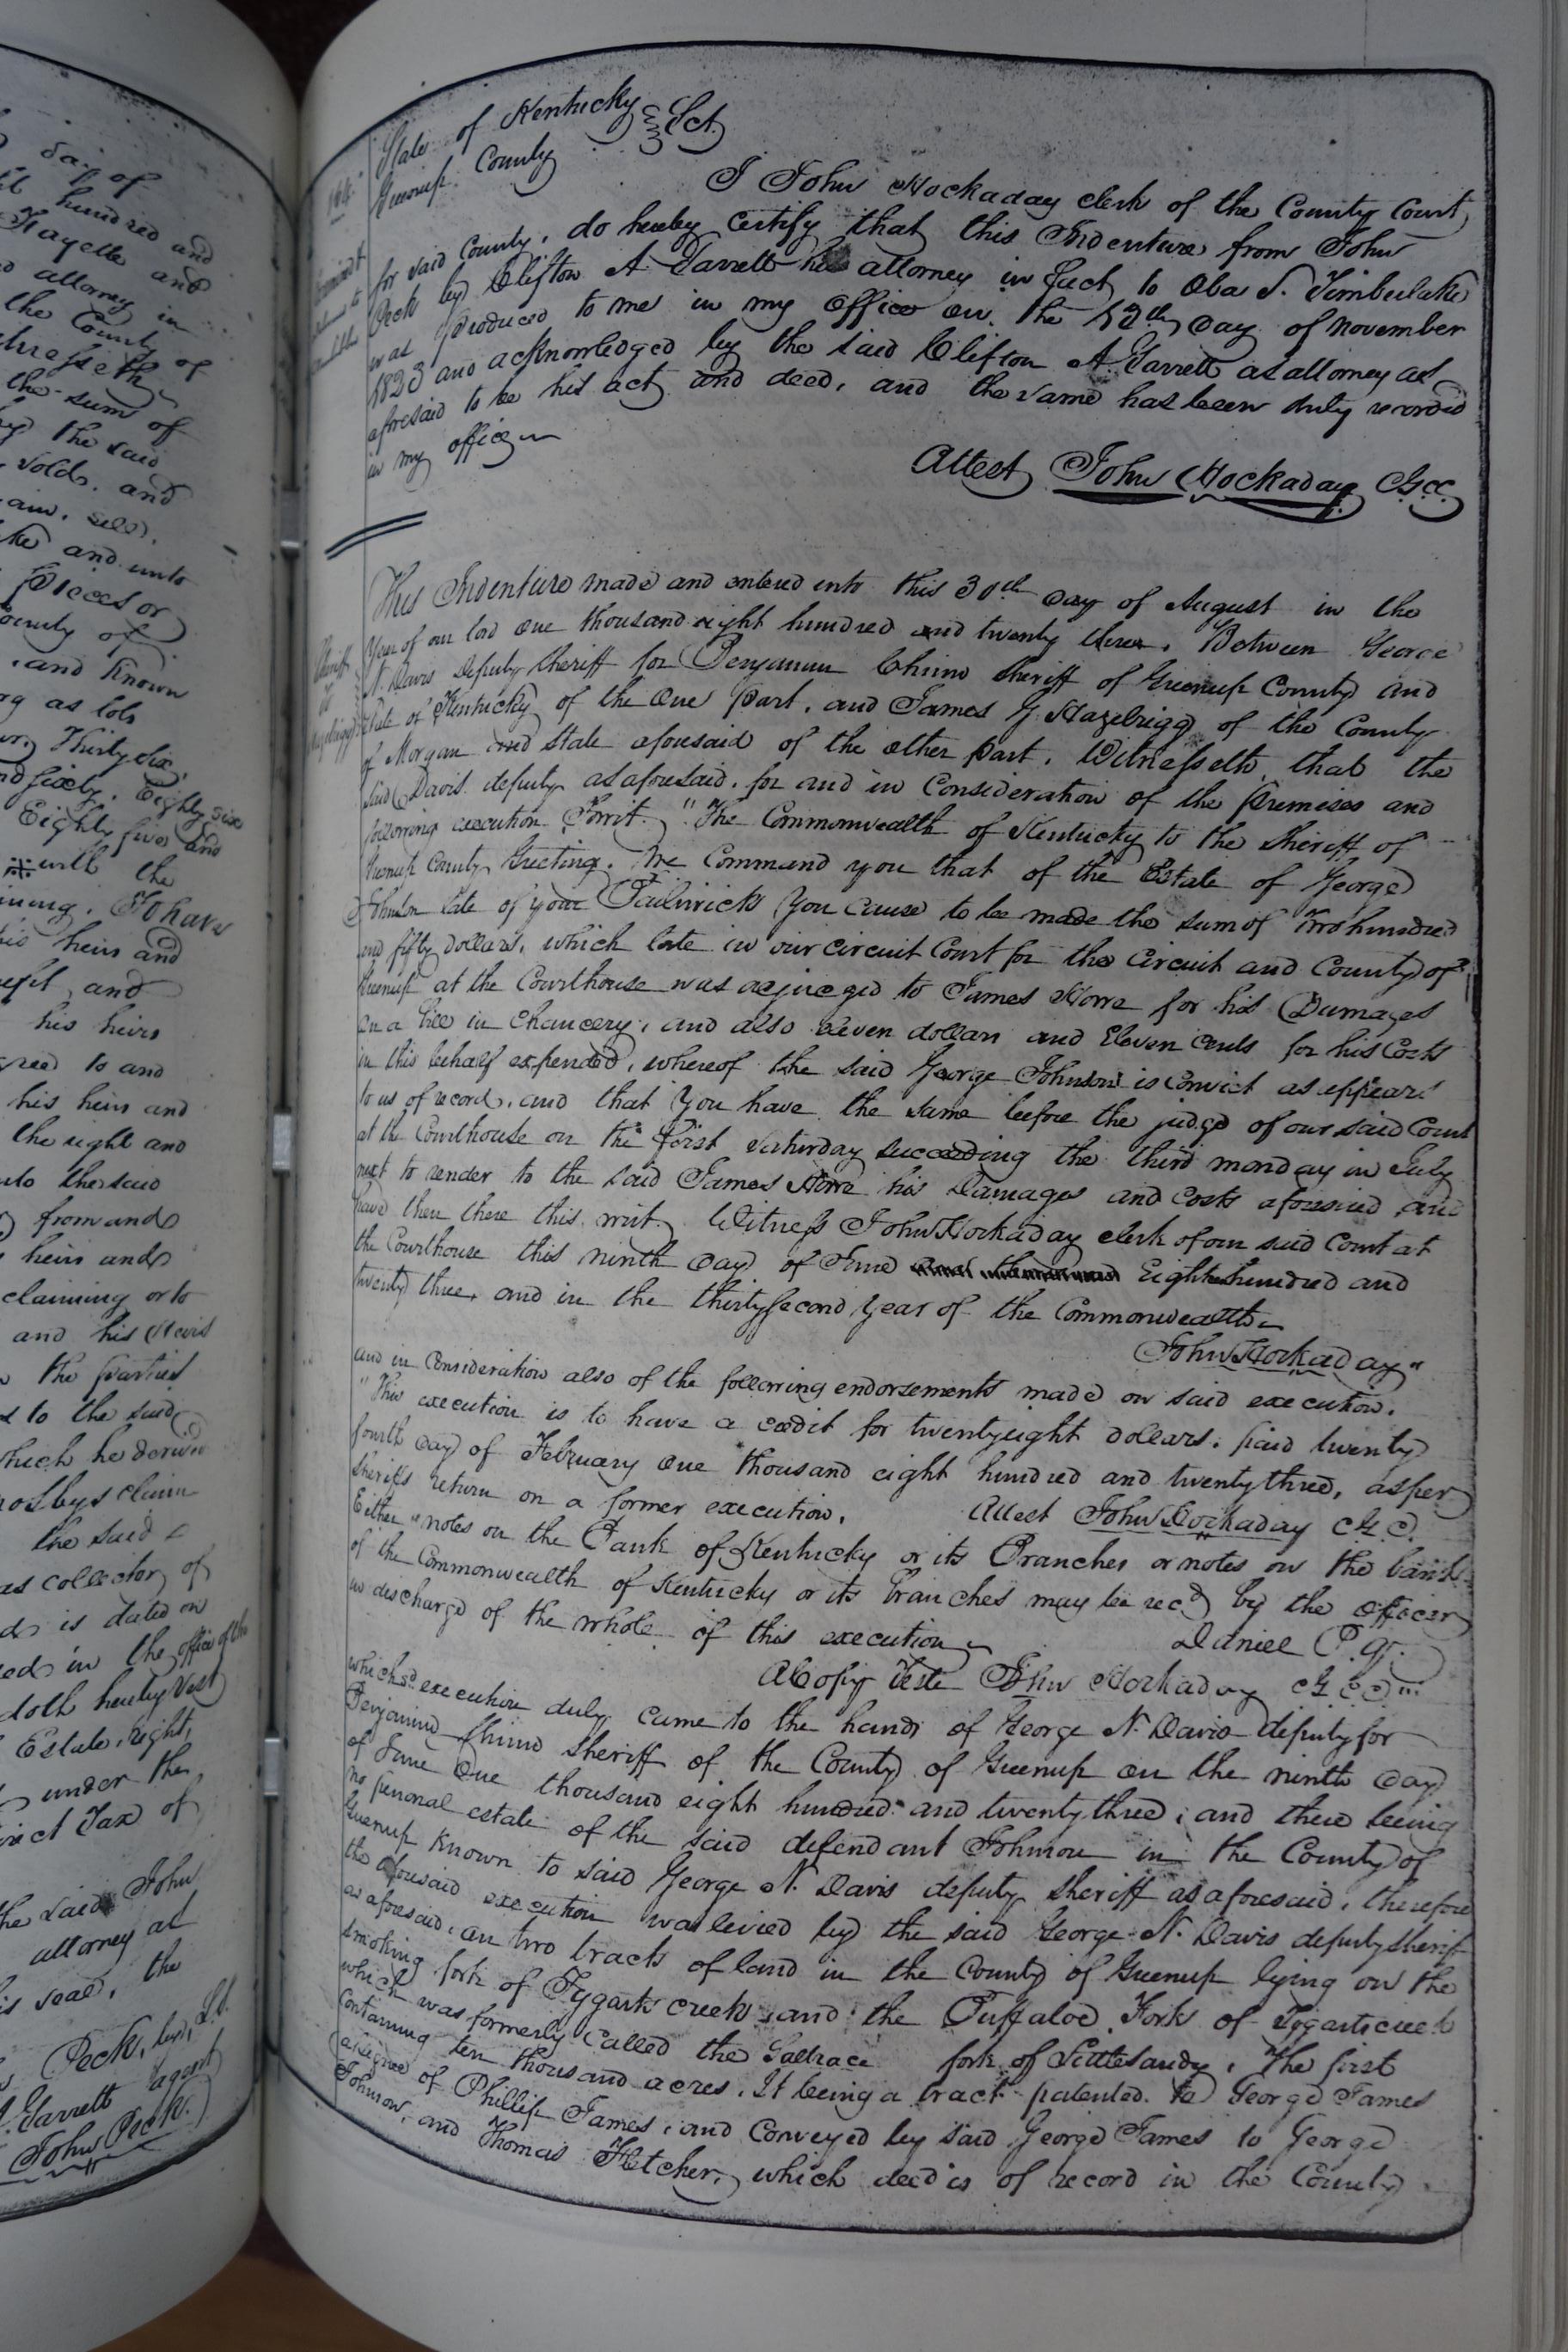 day of
hundred and
Fayette and
attorney in
the County of
the sum of
the said
sold, and
sell,
and unto
Pieces or
County of
and Known
as lots
Thirty six,
and sixty, Eighty six
Eighty five and
with the
To have
his heirs and
and
his heirs
agreed to and
his heirs and
the right and
unto the said
from and
heirs and
claiming or to
and his Heirs
the parties
to the said
which he derived
claim
the said
as collector of
is dated on
in the office of the
doth hereby Vest
Estate, right,
under the
direct Tax of
the said John
attorney at
seal, the
Peck, by
Garrett agent
John Peck.
State of Kentucky } Sct
Greenup County
I John Hockaday clerk of the County Court
for said County, do hereby certify that this Indenture from John
Peck by Clifton A. Garrett his attorney in fact to Oba S. Timberlake
was produced to me in my office on the 12th day of November
1823 and acknowledged by the said Clifton A. Garrett as attorney as
aforesaid to be his act and deed, and the same has been duly recorded
in my office
Attest John Hockaday C.G.C.C.
This Indenture made and entered into this 30th day of August in the
Year of our lord One thousand eight hundred and twenty three. Between George
N. Davis Deputy sheriff for Benjamin Chinn sheriff of Greenup County and
State of Kentucky of the One part, and James G. Hazelrigg of the County
of Morgan and State aforesaid of the other part. Witnesseth that the
said Davis deputy as aforesaid, for and in Consideration of the Premises and
following execution Towit. "The Commonwealth of Kentucky to the Sheriff of
Greenup County Greeting. We Command you that of the Estate of George
Johnson late of your Bailiwick You cause to be made the sum of two hundred
and fifty dollars, which late in our circuit Court for the Circuit and County of
Greenup at the Courthouse was adjudged to James Howe for his Damages
on a bill in Chancery, and also eleven dollars and Eleven cents for his Costs
in this behalf expended, whereof the said George Johnson is convict as appears
to us of record, and that you have the same before the judge of our said Court
at the Courthouse on the first Saturday succeeding the third monday in July
next to render to the said James Howe his Damages and Costs aforesaid and
have then there this writ. Witness John Hockaday clerk of our said Court at
the Courthouse this ninth day of June Eighteen hundred and
twenty three, and in the thirty second year of the Commonwealth
John Hockaday"
and in Consideration also of the following endorsements made on said execution.
"This execution is to have a credit for twenty eight dollars. paid twenty
fourth day of February One thousand eight hundred and twenty three, as per
sheriffs return on a former execution. Attest John Hockaday C G C
Either "notes on the Bank of Kentucky or its Branches or notes on the bank
of the Commonwealth of Kentucky or its branches may be recd by the officer
in discharge of the whole of this execution
Daniel P. Q.
A Copy Teste John Hockaday C G C C"
which sd execution duly came to the hands of George N. Davis deputy for
Benjamin Chinn Sheriff of the County of Greenup on the ninth day
of June One thousand eight hundred and twenty three; and there being
no personal estate of the said defendant Johnson in the County of
Greenup known to said George N. Davis deputy sheriff as aforesaid, therefore
the aforesaid execution was levied by the said George N. Davis deputy sheriff
as aforesaid, on two tracts of land in the County of Greenup lying on the
smoking fork of Tygarts creek and the Buffaloe Fork of Tygarts creek
which was formerly Called the Saltrace fork of Little Sandy. The first
Containing ten thousand acres. It being a tract patented to George James
assignee of Phillip James, and Conveyed by said George James to George
Johnson, and Thomas Fletcher, which deed is of record in the County